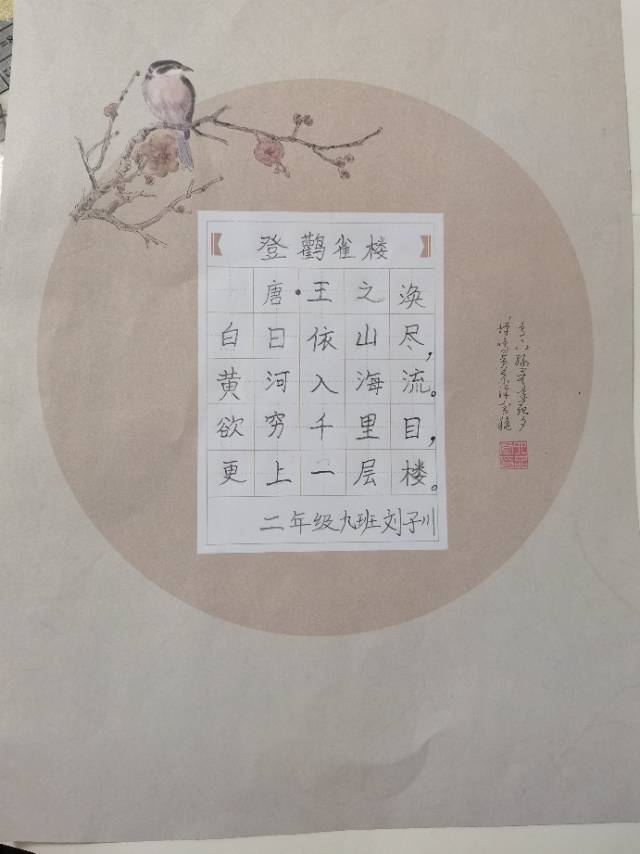 登鹳雀楼
唐·王之涣
白日依山尽，
黄河入海流。
欲穷千里目，
更上一层楼。
二年级九班刘子川